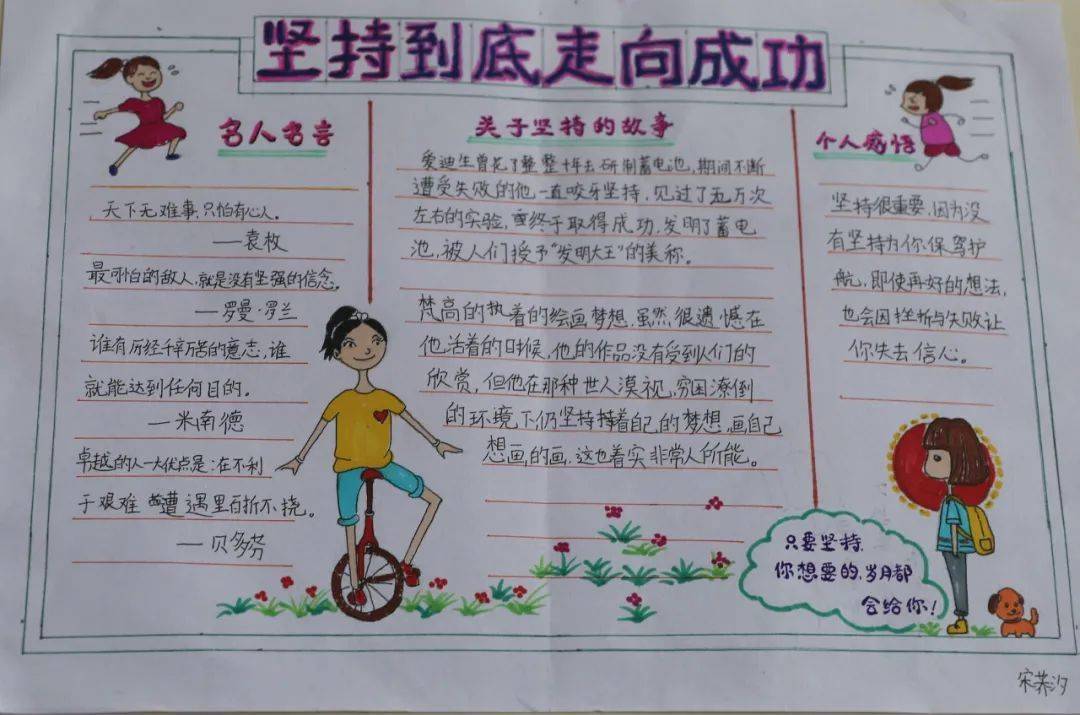 坚持到底走向成功
名人名言
天下无难事,只怕有心人。
——袁枚
最可怕的敌人,就是没有坚强的信念。
——罗曼·罗兰
谁有历经千辛万苦的意志,谁
就能达到任何目的。
——米南德
卓越的人一大优点是:在不利
于艰难 遭遇里百折不挠。
——贝多芬
关于坚持的故事
爱迪生曾花了整整十年去研制蓄电池,期间不断
遭受失败的他一直咬牙坚持,见过了五万次
左右的实验,终于取得成功,发明了蓄电
池,被人们授予“发明大王”的美称。
梵高的执着的绘画梦想,虽然很遗憾在
他活着的时候,他的作品没有受到人们的
欣赏,但他在那种世人漠视,穷困潦倒
的环境下仍坚持持着自己的梦想,画自己
想画的画.这也着实非常人所能。
个人感悟
坚持很重要,因为没
有坚持为你保驾护
航,即使再好的想法,
也会因挫折与失败让
你失去信心。
只要坚持,
你想要的,岁月都
会给你!